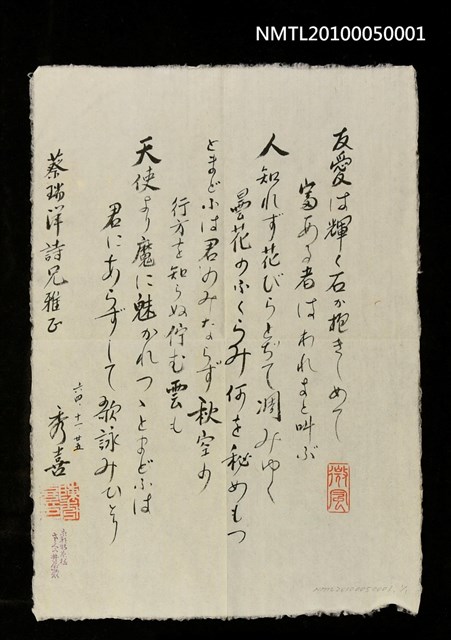 NMTL20100050001
友愛は輝く石か抱きしめて
富ある者はわれまと叫ぶ
微風
人知れず花びらとぢて凋みゆく
曇花のふくらみ何を秘めもつ
とまどふは君のみならず秋空の
行方を知らぬ佇む雲も
天使より魔に魅かれつゝとまどふは
君にあらずして歌詠みひとり
蔡瑞洋詩兄雅正
六四、十一、廿五
秀喜